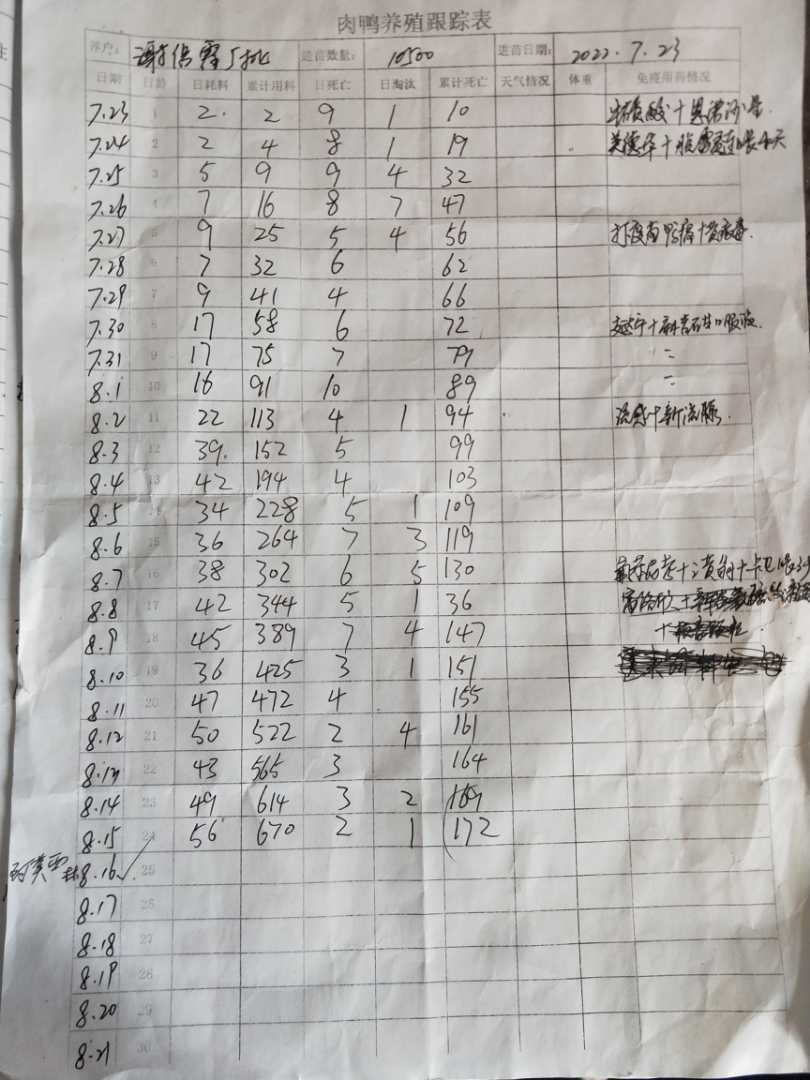 肉鸭养殖跟踪表
养户: 进苗数量: 10500 进苗日期: 2022.7.23
日期 日龄 日耗料 累计用料 日死亡 日淘汰 累计死亡 天气情况 体重 免疫用药情况
7.23 1 2 2 9 1 10
7.24 2 2 4 8 1 19
7.25 3 5 9 9 4 32
7.26 4 7 16 8 7 47
7.27 5 9 25 5 4 56
7.28 6 7 32 6 62
7.29 7 9 41 4 66
7.30 8 17 58 6 72
7.31 9 17 75 7 79
8.1 10 16 91 10 89
8.2 11 22 113 4 1 94
8.3 12 39. 152 5 99
8.4 13 42 194 4 103
8.5 14 34 228 5 1 109
8.6 15 36 264 7 3 119
8.7 16 38 302 6 5 130
8.8 17 42 344 5 1 36
8.9 18 45 389 7 4 147
8.10 19 36 425 3 1 151
8.11 20 47 472 4 155
8.12 21 50 522 2 4 161
8.13 22 43 565 3 164
8.14 23 49 614 3 2 169
8.15 24 56 670 2 1 172
8.16 25
8.17 26
8.18 27
8.19 28
8.20 29
8.21 30